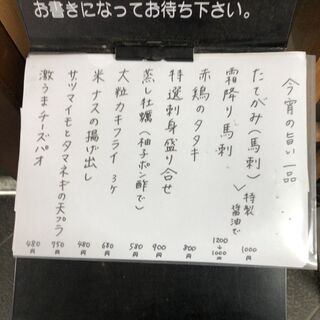 お書きになってお待ち下さい。
今宵の旨い一品
たてがみ(馬刺) 1000円
霜降り馬刺 1200→1000円
特製醤油で
赤鶏のタタキ 800円
特選刺身盛り合せ 900円
蒸し牡蠣(柚子ポン酢で) 580円
大粒カキフライ 3ヶ 680円
米ナスの揚げ出し 480円
サツマイモとタマネギの天プラ 750円
激うまチーズパオ 480円